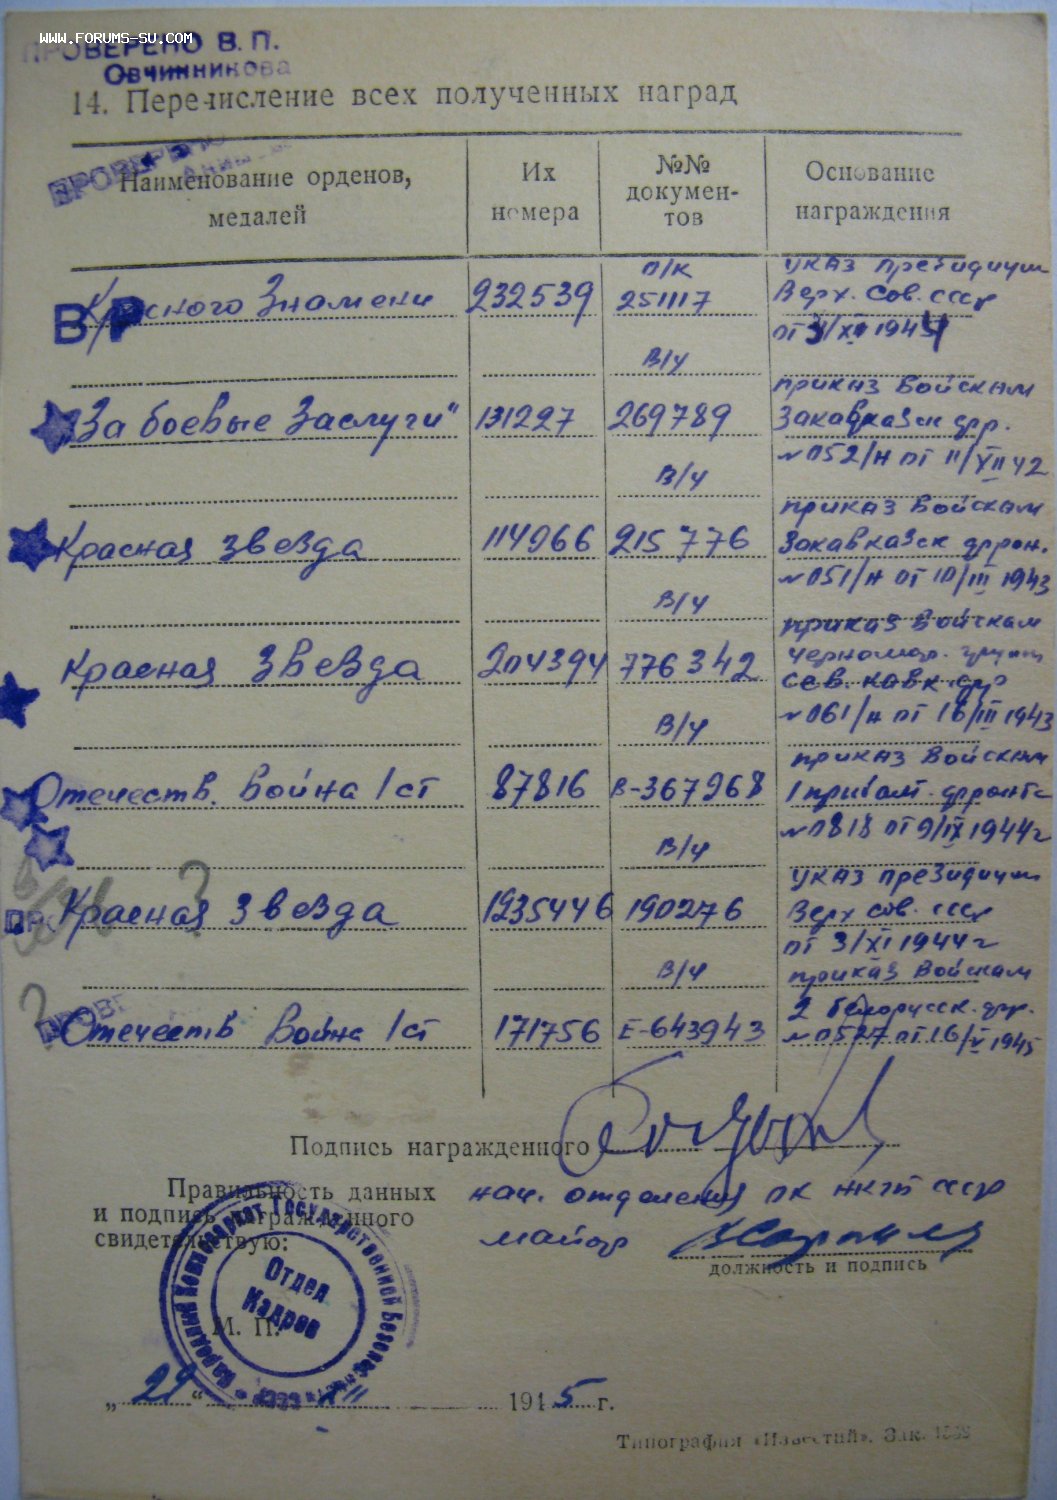 WWW.FORUMS-SU.COM
ПРОВЕРЕНО В. П.
Овчинникова
14. Перечисление всех полученных наград
ПРОВЕРЕНО
Наименование орденов, медалей
Их номера
№№ докумен-тов
Основание награждения
ВР
Красного Знамени 232539 п/к 251117 указ президиум
Верх. Сов. ссср
от 3/XI 1944
"За боевые Заслуги" 131227 в/ч 269789 приказ Войскам
Закавказск фр.
№ 052/н от 11/VII 42
Красная звезда 114966 в/ч 215776 приказ Войскам
Закавказск фрон.
№ 051/н от 10/III 1943
Красная звезда 204394 в/ч 776342 приказ Войскам
черномор. групп
сев. кавк. фр
№ 061/н от 16/III 1943
Отечеств. Война 1 ст 87816 в/ч В-367968 приказ Войскам
1 прибалт. фронта
№ 0818 от 9/IX 1944 г
Красная звезда 1235446 в/ч 190276 указ президиум
Верх Сов. ссср
от 3/XI 1944 г
?
?
Отечеств Война 1 ст 171756 в/ч Е-643943 приказ Войскам
2 белорусск. фр.
№ 0527 от 16/V 1945
Подпись награжденного
Правильность данных
и подпись награжденного
свидетельствую:
нач. отделения ок нкгб ссср
майор
должность и подпись
Народный Комиссариат Государственной Безопасности СССР
Отдел
Кадров
М. П.
„29“ XII 1945 г.
Типография «Известий». Зак.